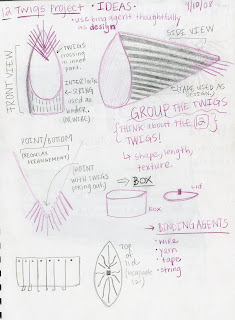 12 Twigs Project • IDEAS •
9/10/08
• use bing agent thoughtfully
as design
SIDE VIEW
FRONT VIEW
TWIGS
crossing
in inner
part.
STRING
used as
(OR WIRE)
USED AS
DESIGN
GROUP THE TWIGS
THINK about THE 12
TWIGS!
↳ shape, length,
texture.
POINT/BOTTOM
(REGULAR
ARRANGEMENT)
POINT
WITH TWIGS
→ BOX
Lid
BOX
TOP
of
lid
→ BINDING AGENTS
• wire
• yarn
• tape
• string